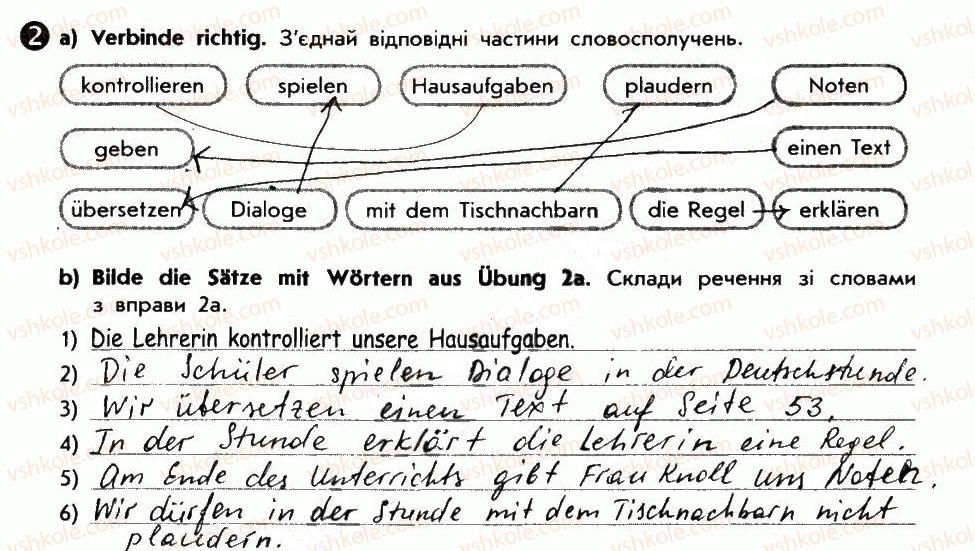 2 a) Verbinde richtig. З'єднай відповідні частини словосполучень.
kontrollieren spielen Hausaufgaben plaudern Noten
geben einen Text
übersetzen Dialoge mit dem Tischnachbarn die Regel erklären
b) Bilde die Sätze mit Wörtern aus Übung 2a. Склади речення зі словами
з вправи 2а.
1) Die Lehrerin kontrolliert unsere Hausaufgaben.
2) Die Schüler spielen Dialoge in der Deutschstunde.
3) Wir übersetzen einen Text auf Seite 53.
4) In der Stunde erklärt die Lehrerin eine Regel.
5) Am Ende des Unterrichts gibt Frau Knoll uns Noten.
6) Wir dürfen in der Stunde mit dem Tischnachbarn nicht
plaudern.